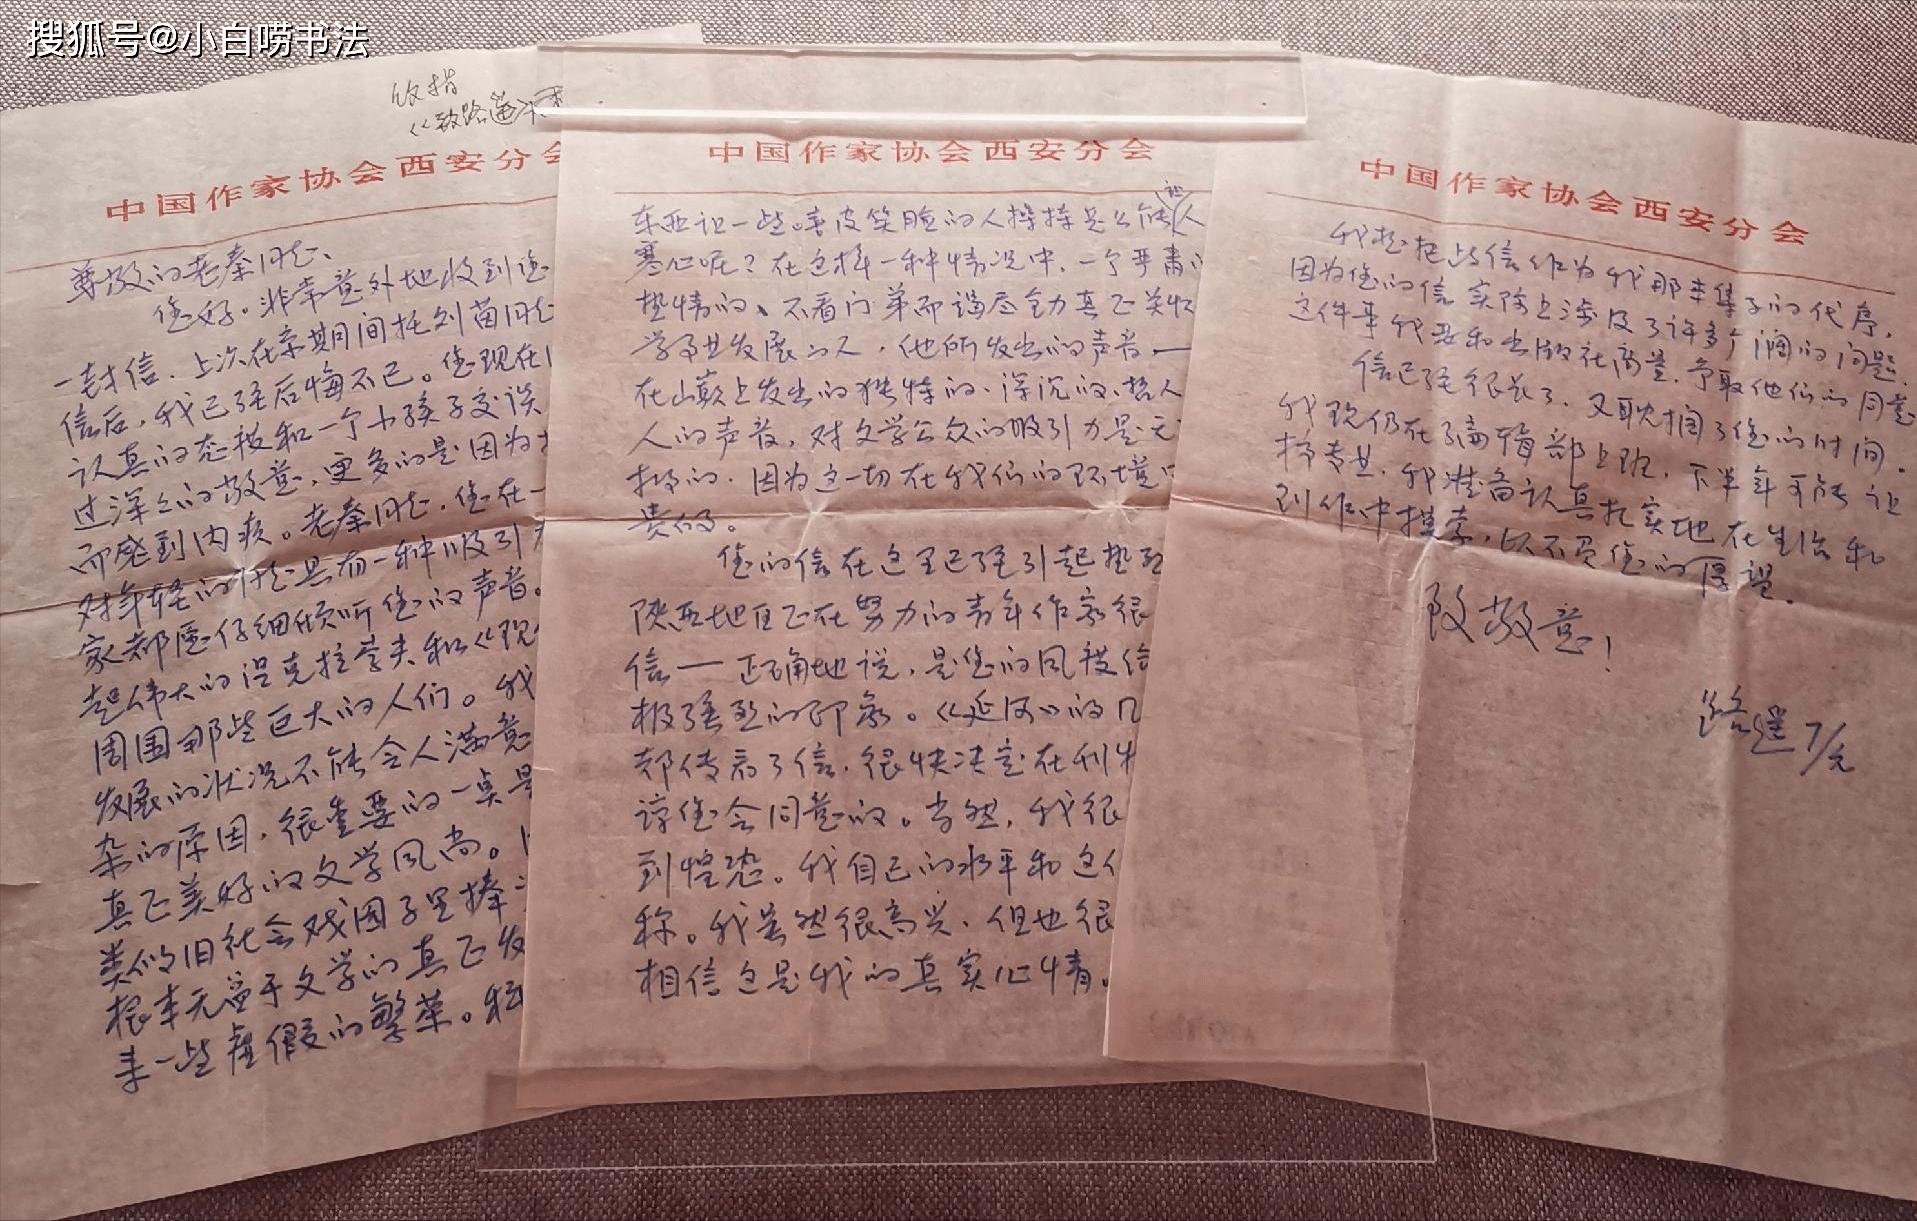 搜狐号@小白唠书法
收指
《致路遥》
中国作家协会西安分会
尊敬的老秦同志、
您好。非常意外地收到您
一封信、上次在京期间托刘茵同志
信后，我已经后悔不已。您现在
认真的态度和一个小孩子交谈
过深深的敬意，更多的是因为
而感到内疚。老秦同志，您在一
对年轻的同志具有一种吸引
家都愿仔细倾听您的声音。
起伟大的涅克拉索夫和《现
周围那些巨大的人们。我
发展的状况不能令人满意
杂的原因，很重要的一点是
真正美好的文学风尚。
类似旧社会戏园子里捧
根本无益于文学的真正发
来一些虚假的繁荣。
中国作家协会西安分会
东西让一些嬉皮笑脸的人操持是多能让人
寒心呢？在这样一种情况中，一个严肃
热情的、不看门第而竭尽全力真正关怀
学事业发展的人，他所发出的声音——
在山巅上发出的独特的、深沉的、哲人
人的声音，对文学公众的吸引力是无
抗的．因为这一切在我们的环境
贵的。
您的信在这里已经引起热烈
陕西地区正在努力的青年作家很
信——正确地说，是您的风度给
极强烈的印象。《延河》的几
都传看了信，很快决定在刊
谅您会同意的。当然，我很
到惶恐。我自己的水平和这
称。我虽然很高兴，但也很
相信这是我的真实心情。
中国作家协会西安分会
我想把此信作为我那本集子的代序，
因为您的信实际上涉及了许多个间的问题．
这件事我要和出版社商量，争取他们的同意
信已经很长了，又耽搁了您的时间．
我现仍在编辑部上班，下半年可能让
搞专业．我准备认真扎实地在生活和
创作中摸索，以不负您的厚望．
致敬意！
路遥